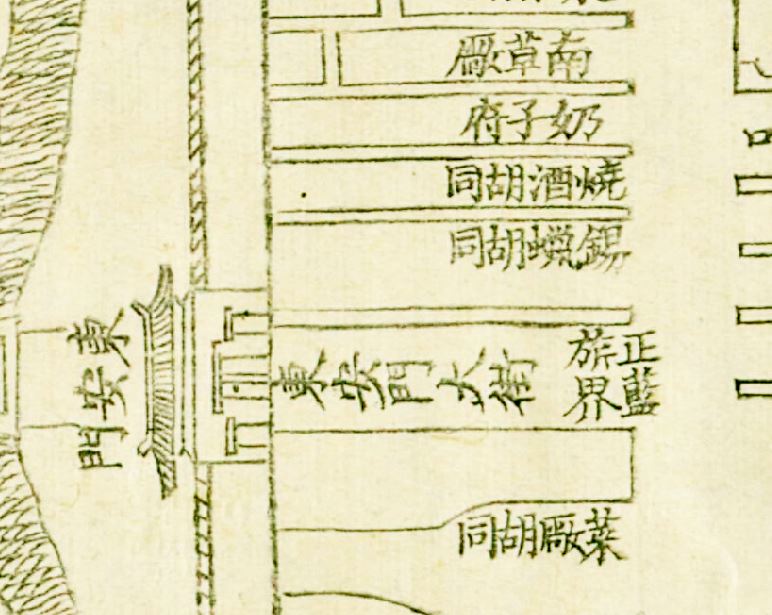 南草厰
奶子府
燒酒胡同
錫蠟胡同
東安門
東安門大街
正藍
旂界
菜厰胡同